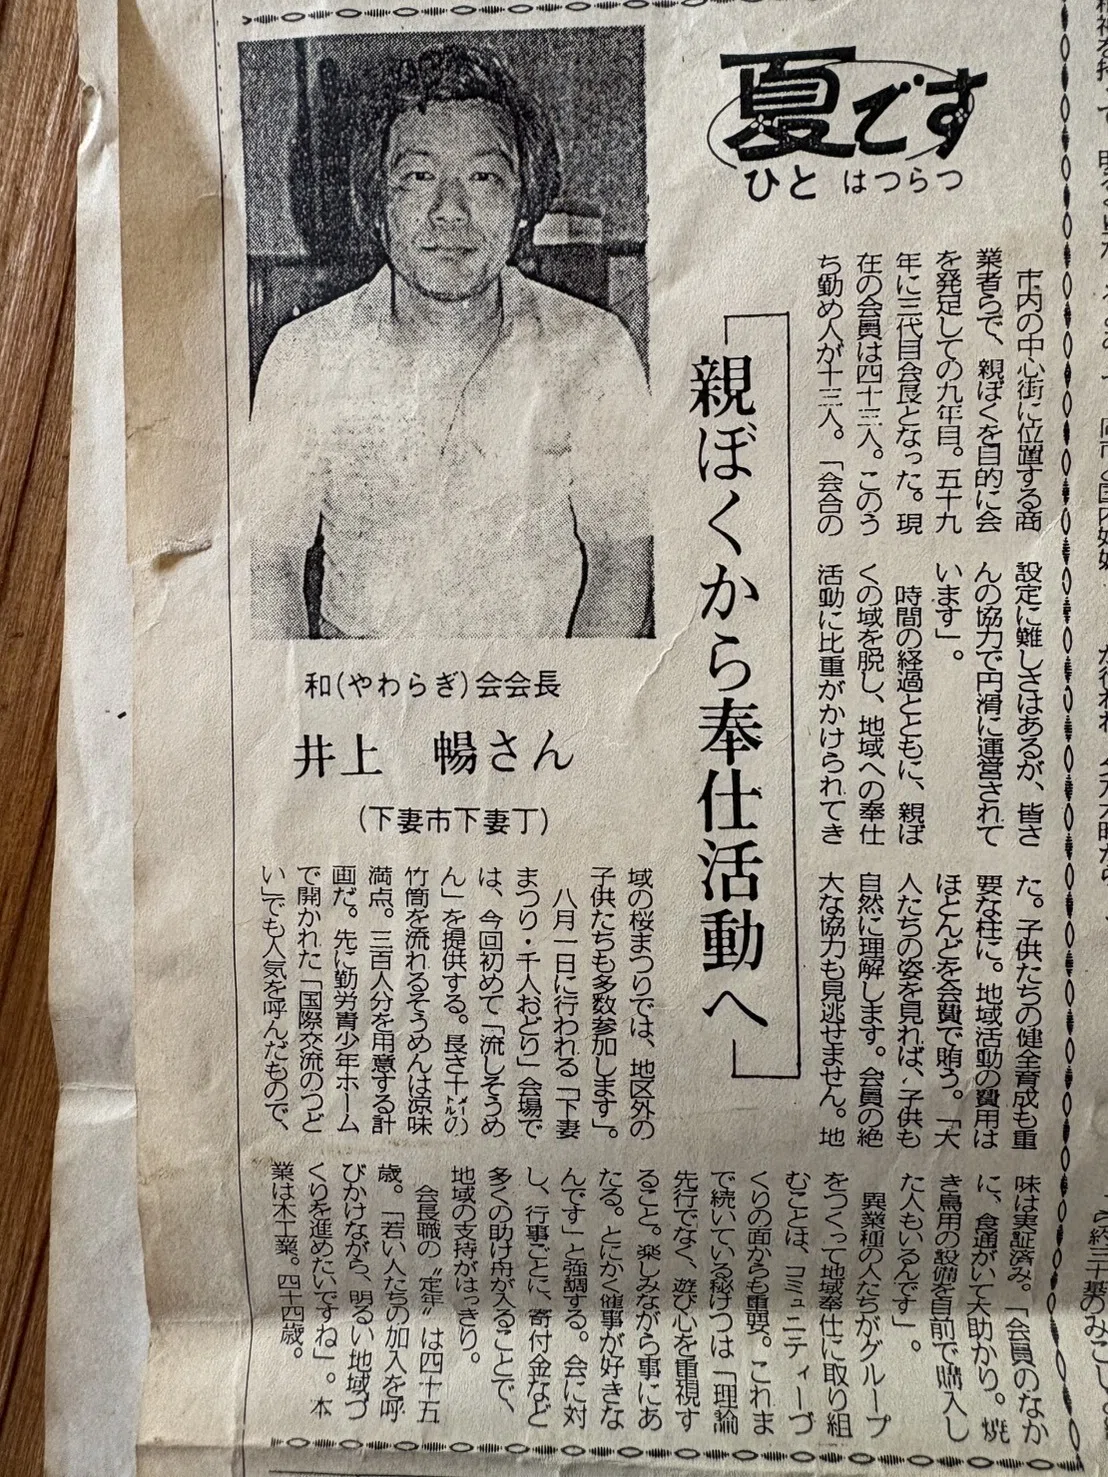 夏です
ひと はつらつ
親ぼくから奉仕活動へ
和(やわらぎ)会会長
井上 暢さん
(下妻市下妻丁)
市内の中心街に位置する商
業者らで、親ぼくを目的に会
を発足しての九年目。五十九
年に三代目会長となった。現
在の会員は四十三人。このう
ち勤め人が十三人。「会合の
設定に難しさはあるが、皆さ
んの協力で円滑に運営されて
います」。
時間の経過とともに、親ぼ
くの域を脱し、地域への奉仕
活動に比重がかけられてき
た。子供たちの健全育成も重
要な柱に。地域活動の費用は
ほとんどを会費で賄う。「大
人たちの姿を見れば、子供も
自然に理解します。会員の絶
大な協力も見逃せません。地
域の桜まつりでは、地区外の
子供たちも多数参加します」。
八月一日に行われる「下妻
まつり・千人おどり」会場で
は、今回初めて「流しそうめ
ん」を提供する。長さ十メートルの
竹筒を流れるそうめんは涼味
満点。三百人分を用意する計
画だ。先に勤労青少年ホーム
で開かれた「国際交流のつど
い」でも人気を呼んだもので、
味は実証済み。「会員のなか
に、食通がいて大助かり。焼
き鳥用の設備を自前で購入し
た人もいるんです」。
異業種の人たちがグループ
をつくって地域奉仕に取り組
むことは、コミュニティーづ
くりの面からも重要。これま
で続いている秘けつは「理論
先行でなく、遊び心を重視す
ること。楽しみながら事にあ
たる。とにかく催事が好きな
んです」と強調する。会に対
し、行事ごとに、寄付金など
多くの助け舟が入ることで、
地域の支持がはっきり。
会長職の〝定年〟は四十五
歳。「若い人たちの加入を呼
びかけながら、明るい地域づ
くりを進めたいですね」。本
業は木工業。四十四歳。